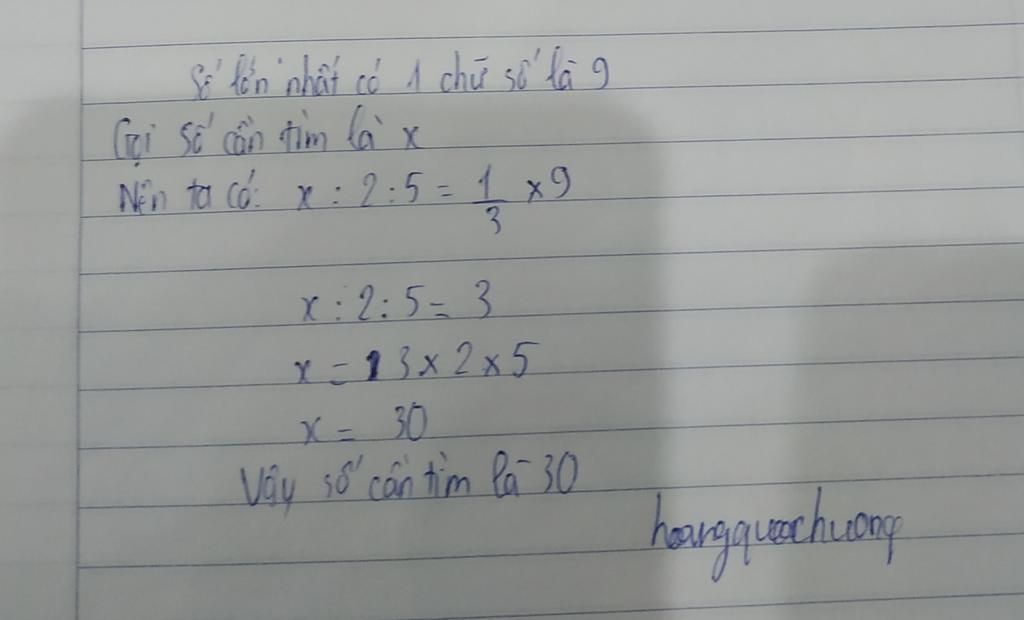 Số lớn nhất có 1 chữ số là 9
Gọi số cần tìm là x
Nên ta có: x : 2 : 5 = 1/3 × 9
x : 2 : 5 = 3
x = 3 × 2 × 5
x = 30
Vậy số cần tìm là 30
hoangquochuong